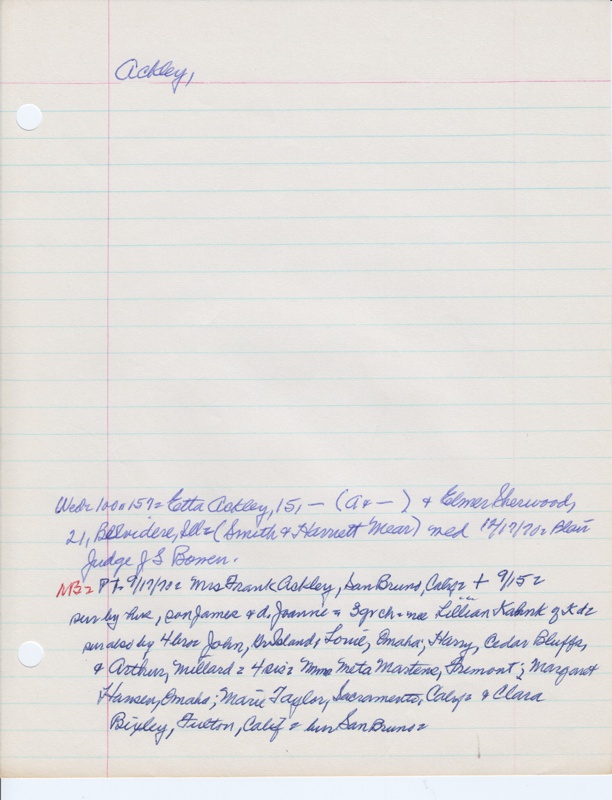 Ackley,
Wed= 100n157= Etta Ackley, 15, — (A & —) & Elmer Sherwood,
21, Belvidere, Ill= (Smith & Harriett Mear) med 12/17/70= Blair
Judge J S Bowen.
NB= Pt 9/17/70= Mrs Frank Ackley, San Bruno, Calif= + 9/15=
surv by hus, son James & d. Joanne & 3 gr ch= nee Lillian Kahnk of Kd=
surv also by 4 bro= John, Gr Island; Louie, Omaha; Harry, Cedar Bluffs,
& Arthur, Millard= 4 sis= Mmes Meta Martens, Fremont; Margaret
Hansen, Omaha; Marie Taylor, Sacramento, Calif= & Clara
Bixley, Fulton, Calif= bur San Bruno=